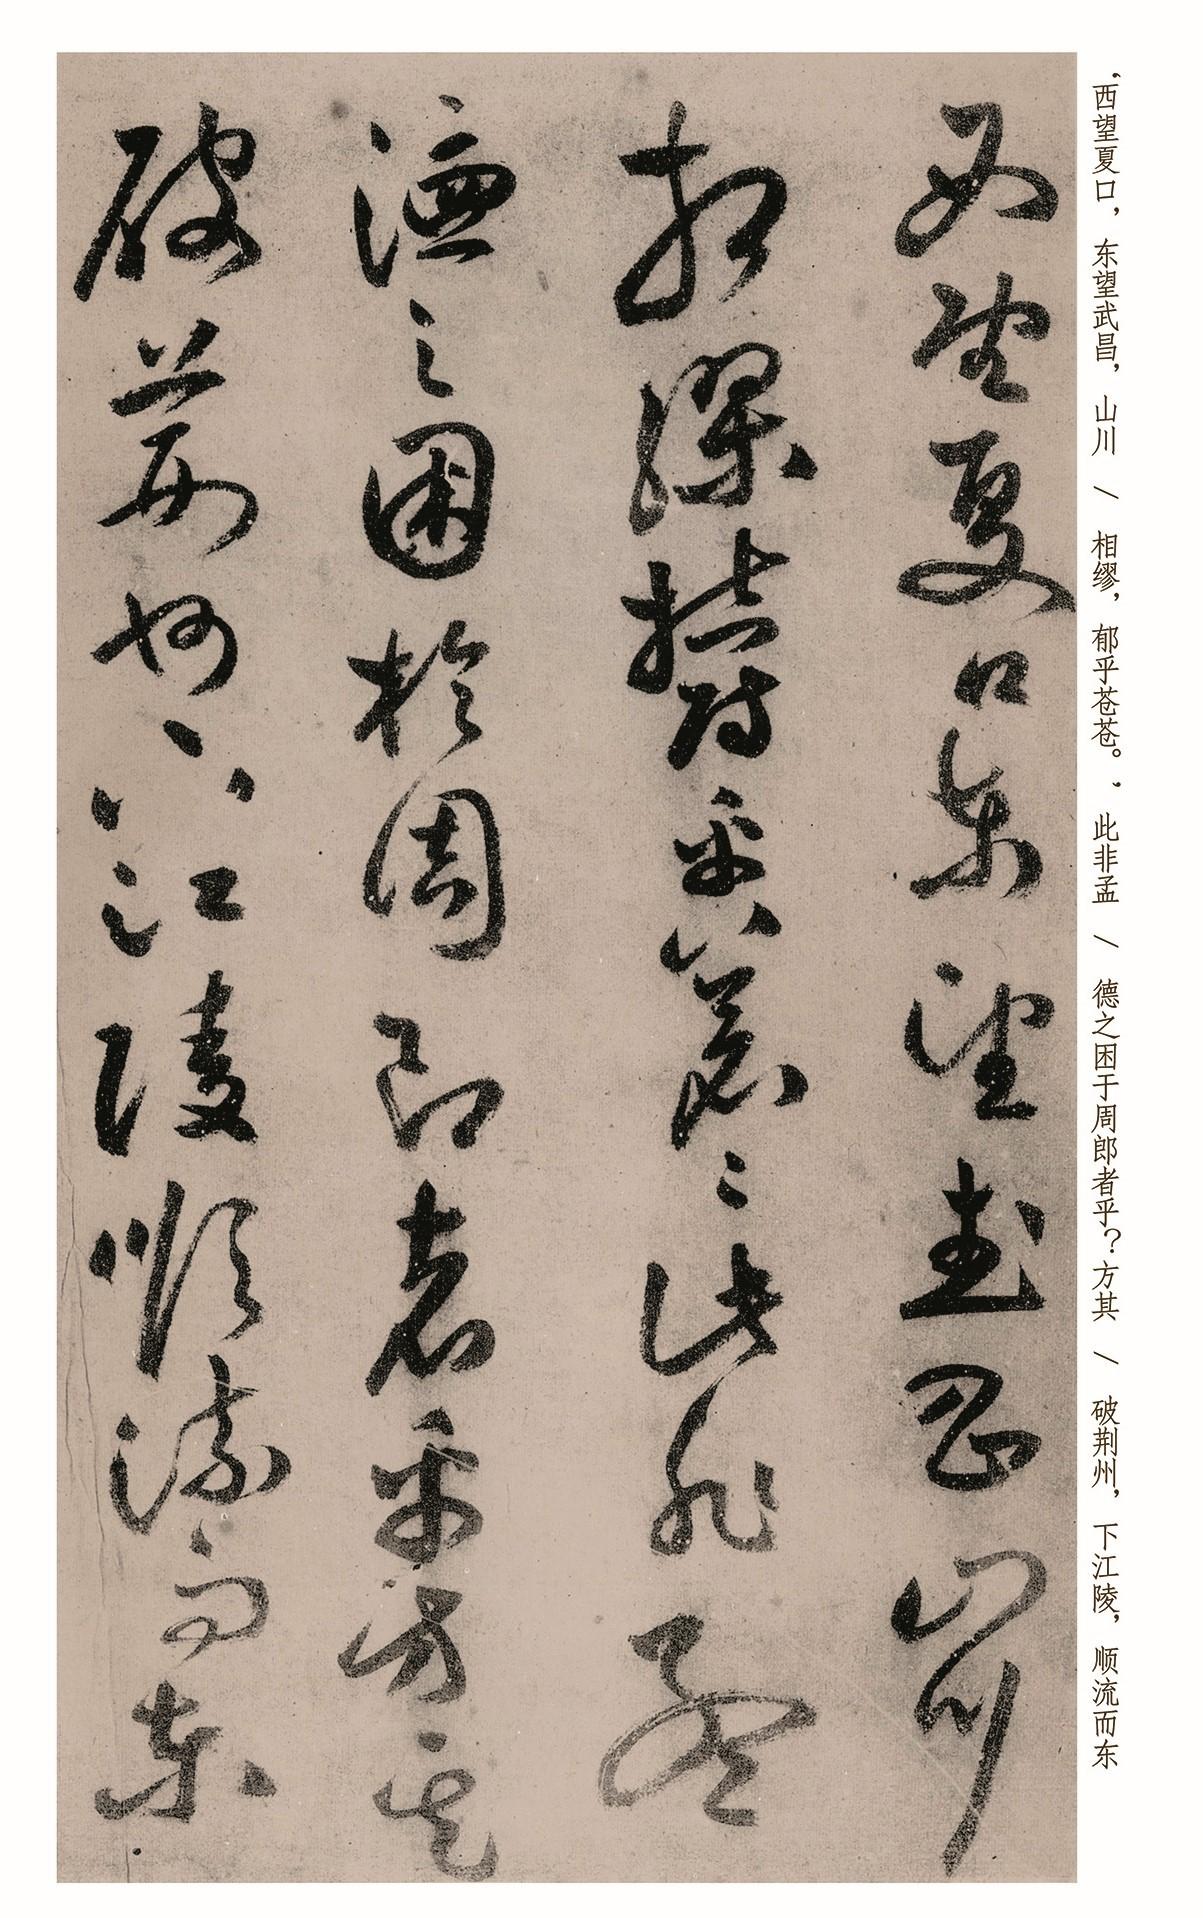 ‘西望夏口，东望武昌，山川 / 相缪，郁乎苍苍。’此非孟 / 德之困于周郎者乎？方其 / 破荆州，下江陵，顺流而东
西望夏口東望武昌山川
相繆鬱乎蒼〻此非孟
德之困於周郎者乎方其
破荊州下江陵順流而東